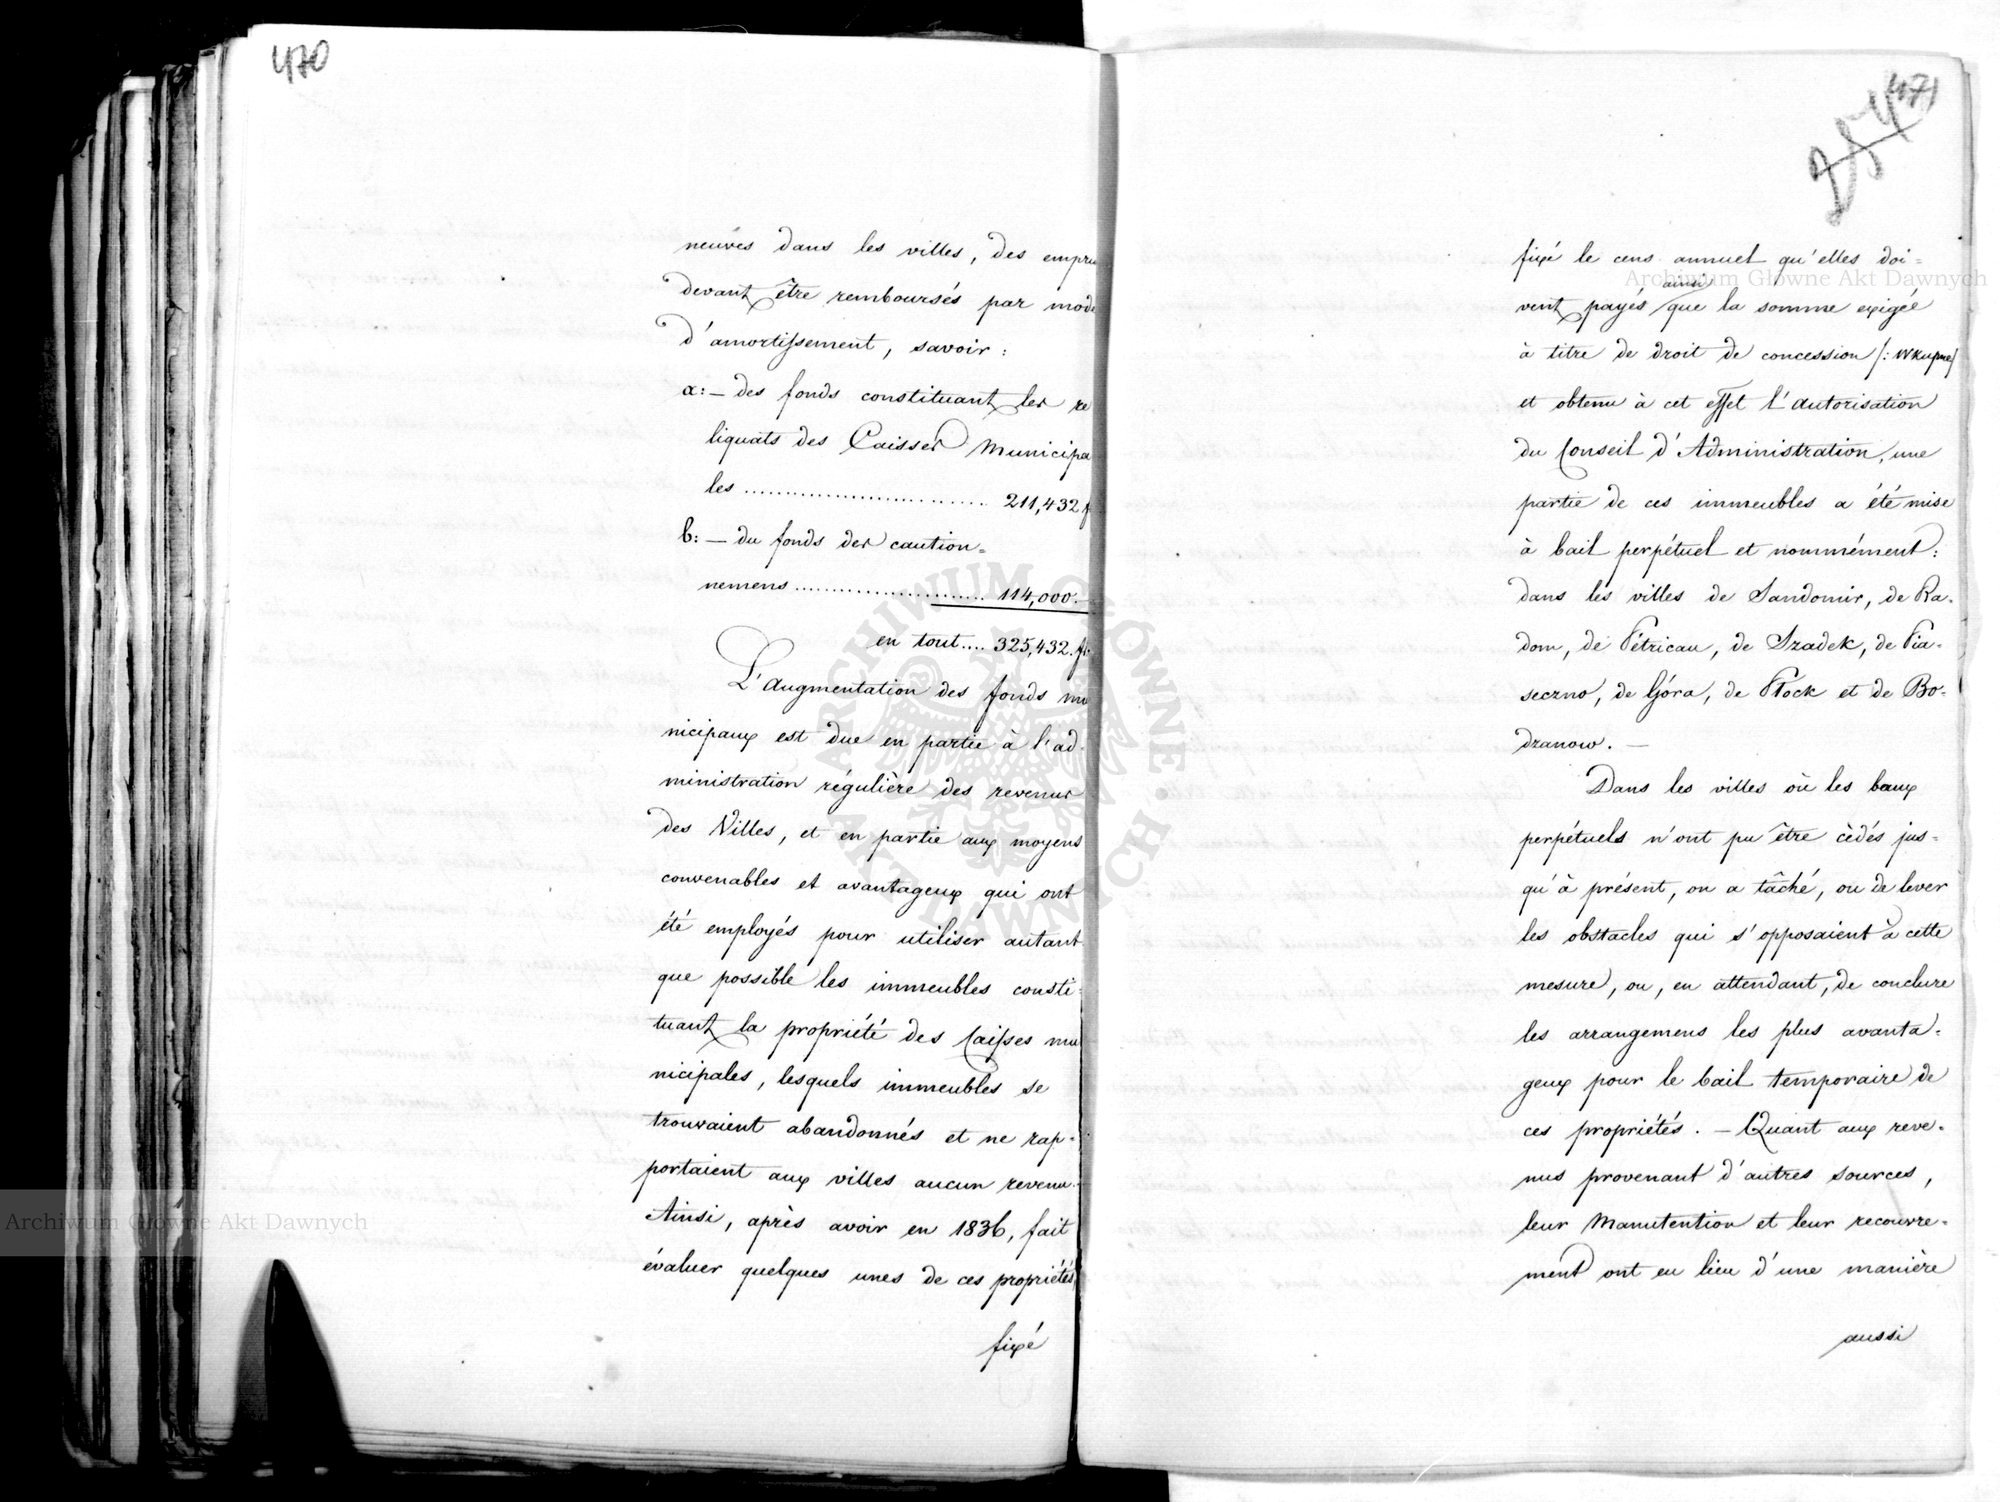 470
neuves dans les villes, des empru
devant être remboursés par mode
d'amortissement, savoir:
a:— des fonds constituant les re
liquats des Caisses Municipa
les .......................... 211,432 f
b:— du fonds des caution=
nemens ........................ 114,000.—
en tout.... 325,432. fr.
L'augmentation des fonds mu
nicipaux est due en partie à l'ad-
ministration régulière des revenus
des Villes, et en partie aux moyens
convenables et avantageux qui ont
été employés pour utiliser autant
que possible les immeubles consti-
tuant la propriété des Caisses mu
nicipales, lesquels immeubles se
trouvaient abandonnés et ne rap-
portaient aux villes aucun revenu.
Ainsi, après avoir en 1836, fait
évaluer quelques unes de ces propriétés
fixé
471
fixé le cens annuel qu'elles doi=
ainsi
vent payés que la somme exigée
à titre de droit de concession /: Wkupne/
et obtenu à cet effet l'autorisation
du Conseil d'Administration, une
partie de ces immeubles a été mise
à bail perpétuel et nommément:
dans les villes de Sandomir, de Ra-
dom, de Pétricau, de Szadek, de Pia-
seczno, de Góra, de Płock et de Bo-
dzanow. —
Dans les villes où les baux
perpétuels n'ont pu être cèdés jus-
qu'à présent, on a tâché, ou de lever
les obstacles qui s'opposaient à cette
mesure, ou, en attendant, de conclure
les arrangemens les plus avanta-
geux pour le bail temporaire de
ces propriétés. — Quant aux reve-
nus provenant d'autres sources,
leur Manutention et leur recouvre-
ment ont eu lieu d'une manière
aussi
Archiwum Główne Akt Dawnych
Archiwum Główne Akt Dawnych
ARCHIWUM GŁÓWNE AKT DAWNYCH